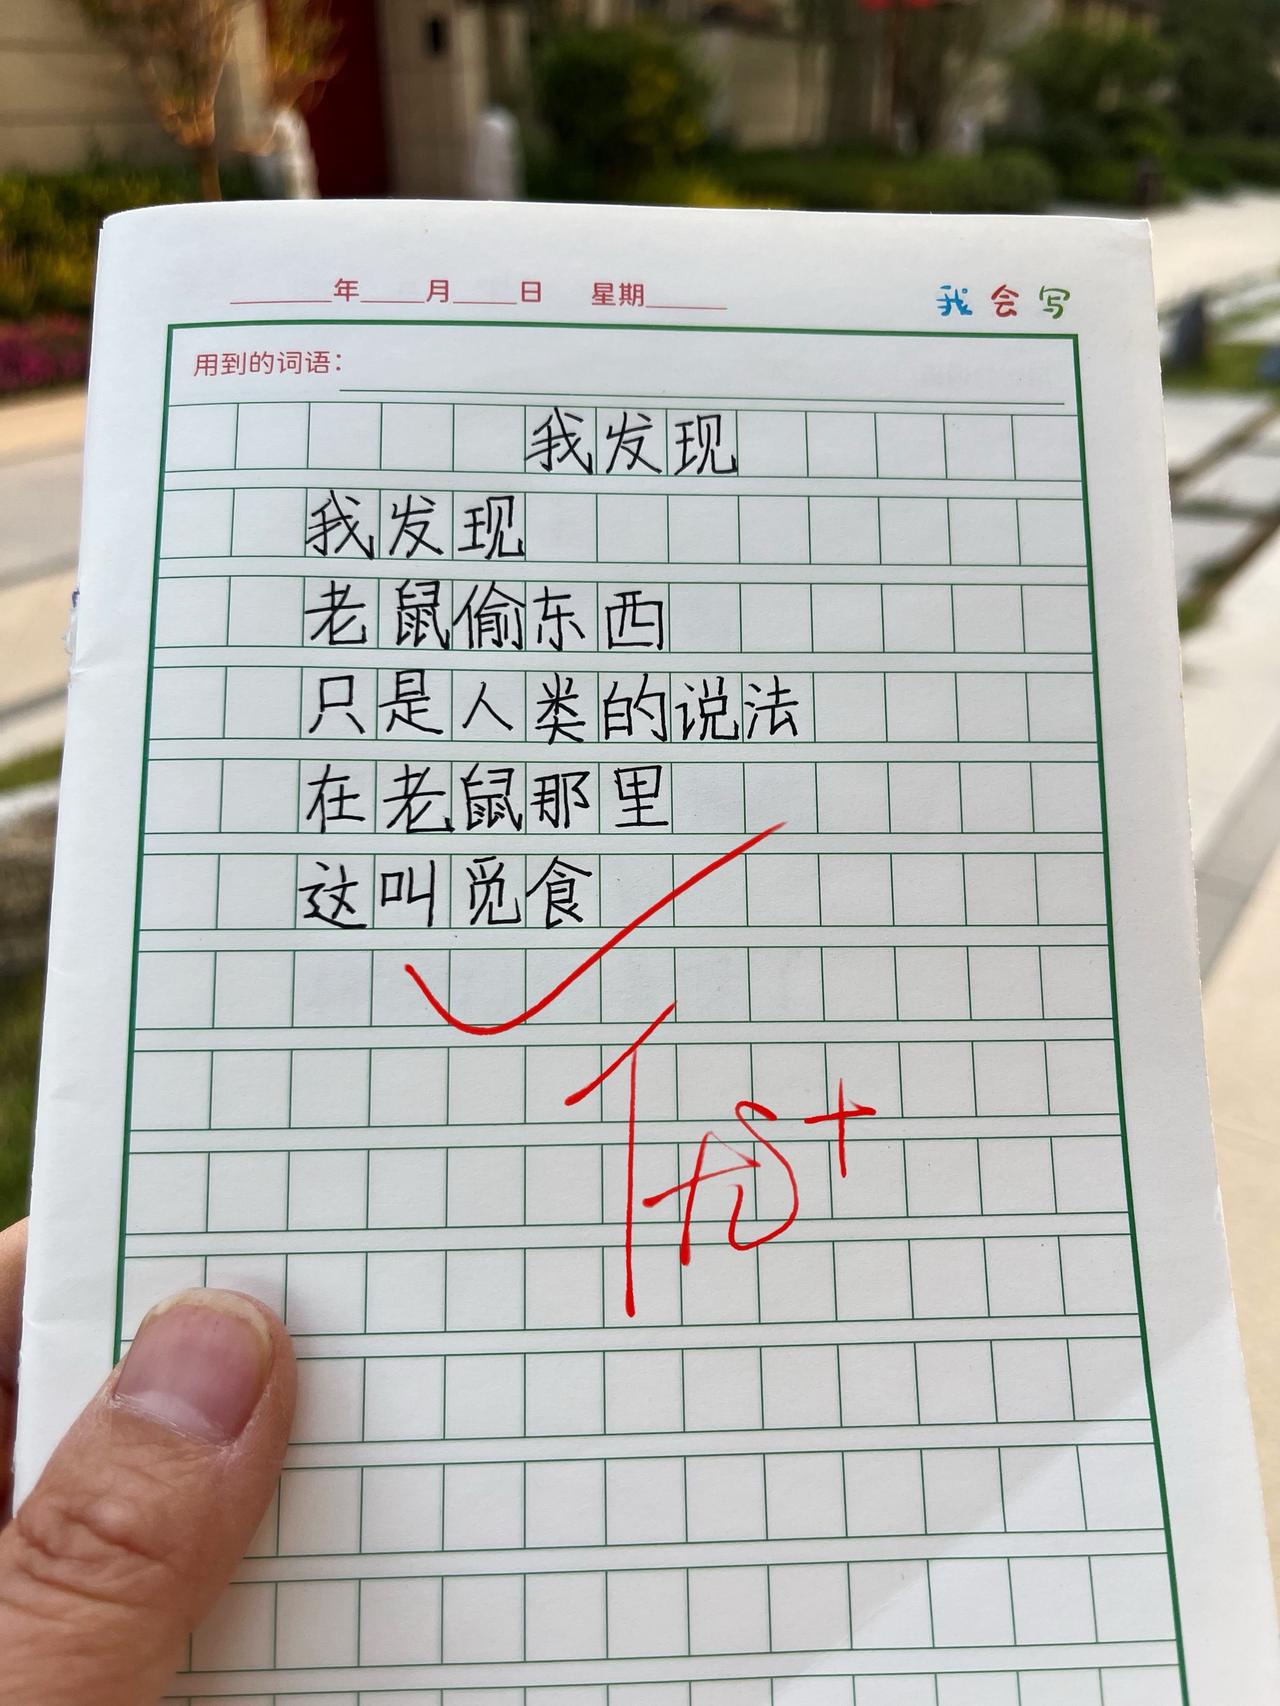 ____年____月____日 星期____
我会写
用到的词语：
我发现
我发现
老鼠偷东西
只是人类的说法
在老鼠那里
这叫觅食
优+